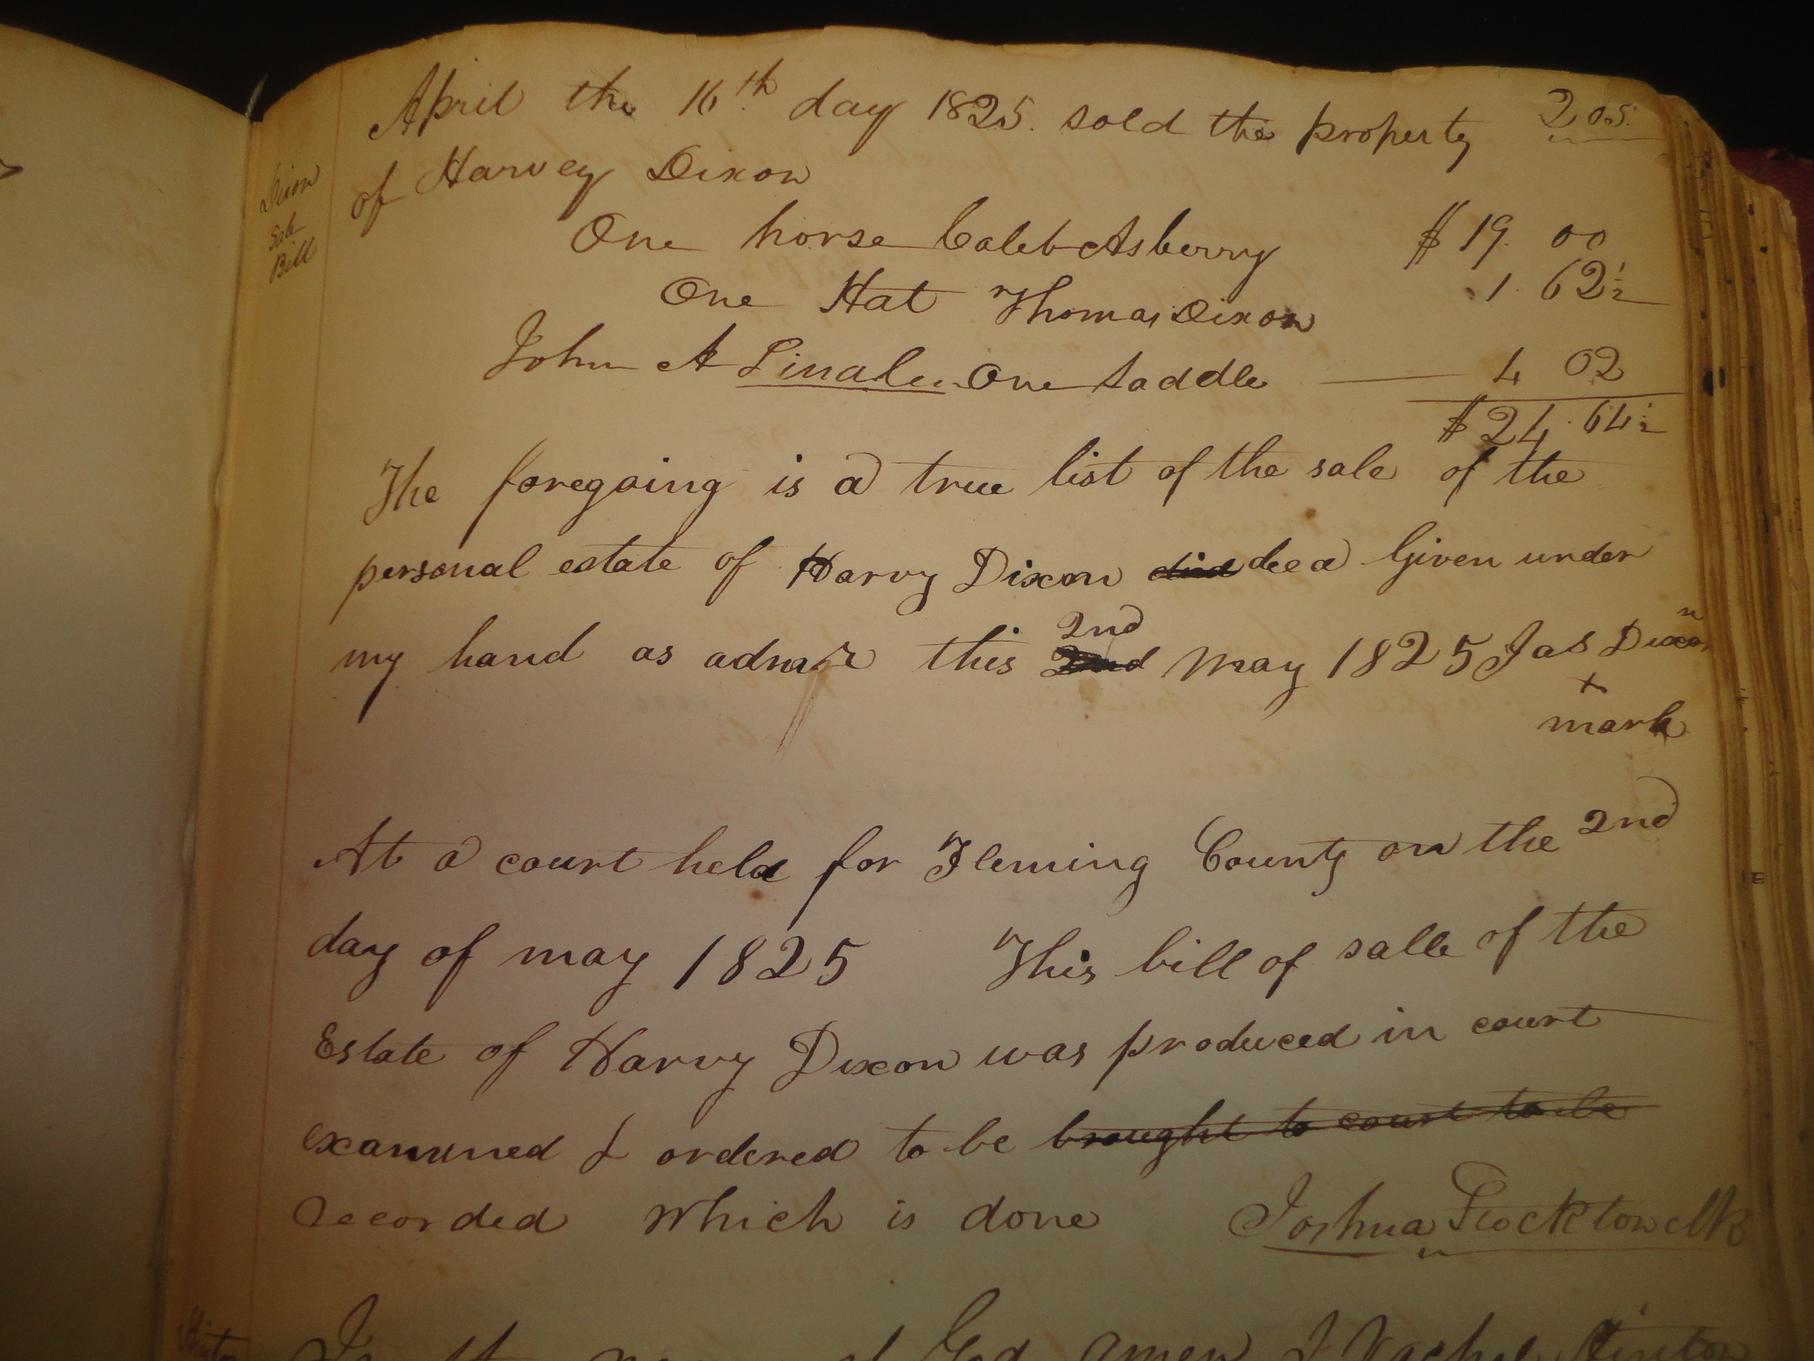 205.
April the 16th day 1825. sold the property
of Harvey Dixon
Dixon
Sale
Bill
One horse Caleb Asberry $19. 00
One Hat Thomas Dixon 1. 62½
John A One Saddle 4 02
$24. 64½
The foregoing is a true list of the sale of the
personal estate of Harvy Dixon died decd Given under
my hand as admr this 2nd 2nd May 1825 Jas Dixon
x
mark
At a court held for Fleming County on the 2nd
day of may 1825 This bill of salle of the
Estate of Harvy Dixon was produced in court
examined & ordered to be brought to court to be
Recorded which is done Joshua Stockton clk
God amen I Vachel Hinton